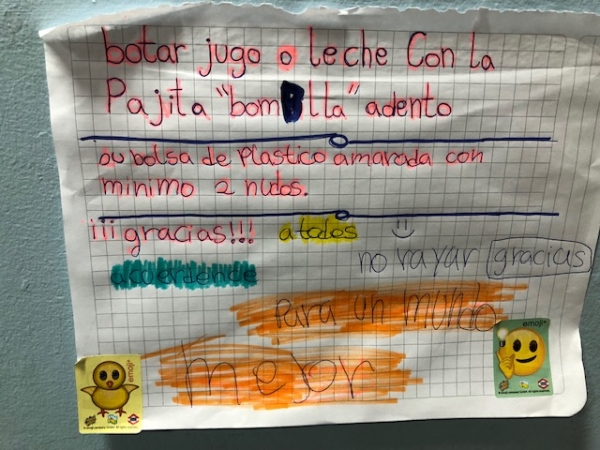 botar jugo o leche Con la
Pajita "bombilla" adento
su bolsa de Plastico amarada con
minimo 2 nudos.
¡¡¡gracias!!! a todos
no rayar gracias
acuerdende
Para un mundo
mejor
emoji
emoji